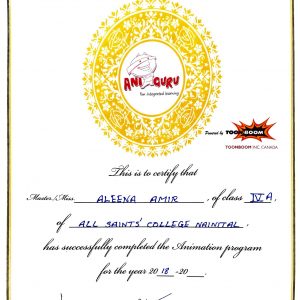 ANI GURU
For integrated learning
Powered by TOON BOOM
TOONBOOM INC CANADA
This is to certify that
Master./Miss. ALEENA AMIR of class IV A,
of ALL SAINTS' COLLEGE NAINITAL,
has successfully completed the Animation program
for the year 2018 -20